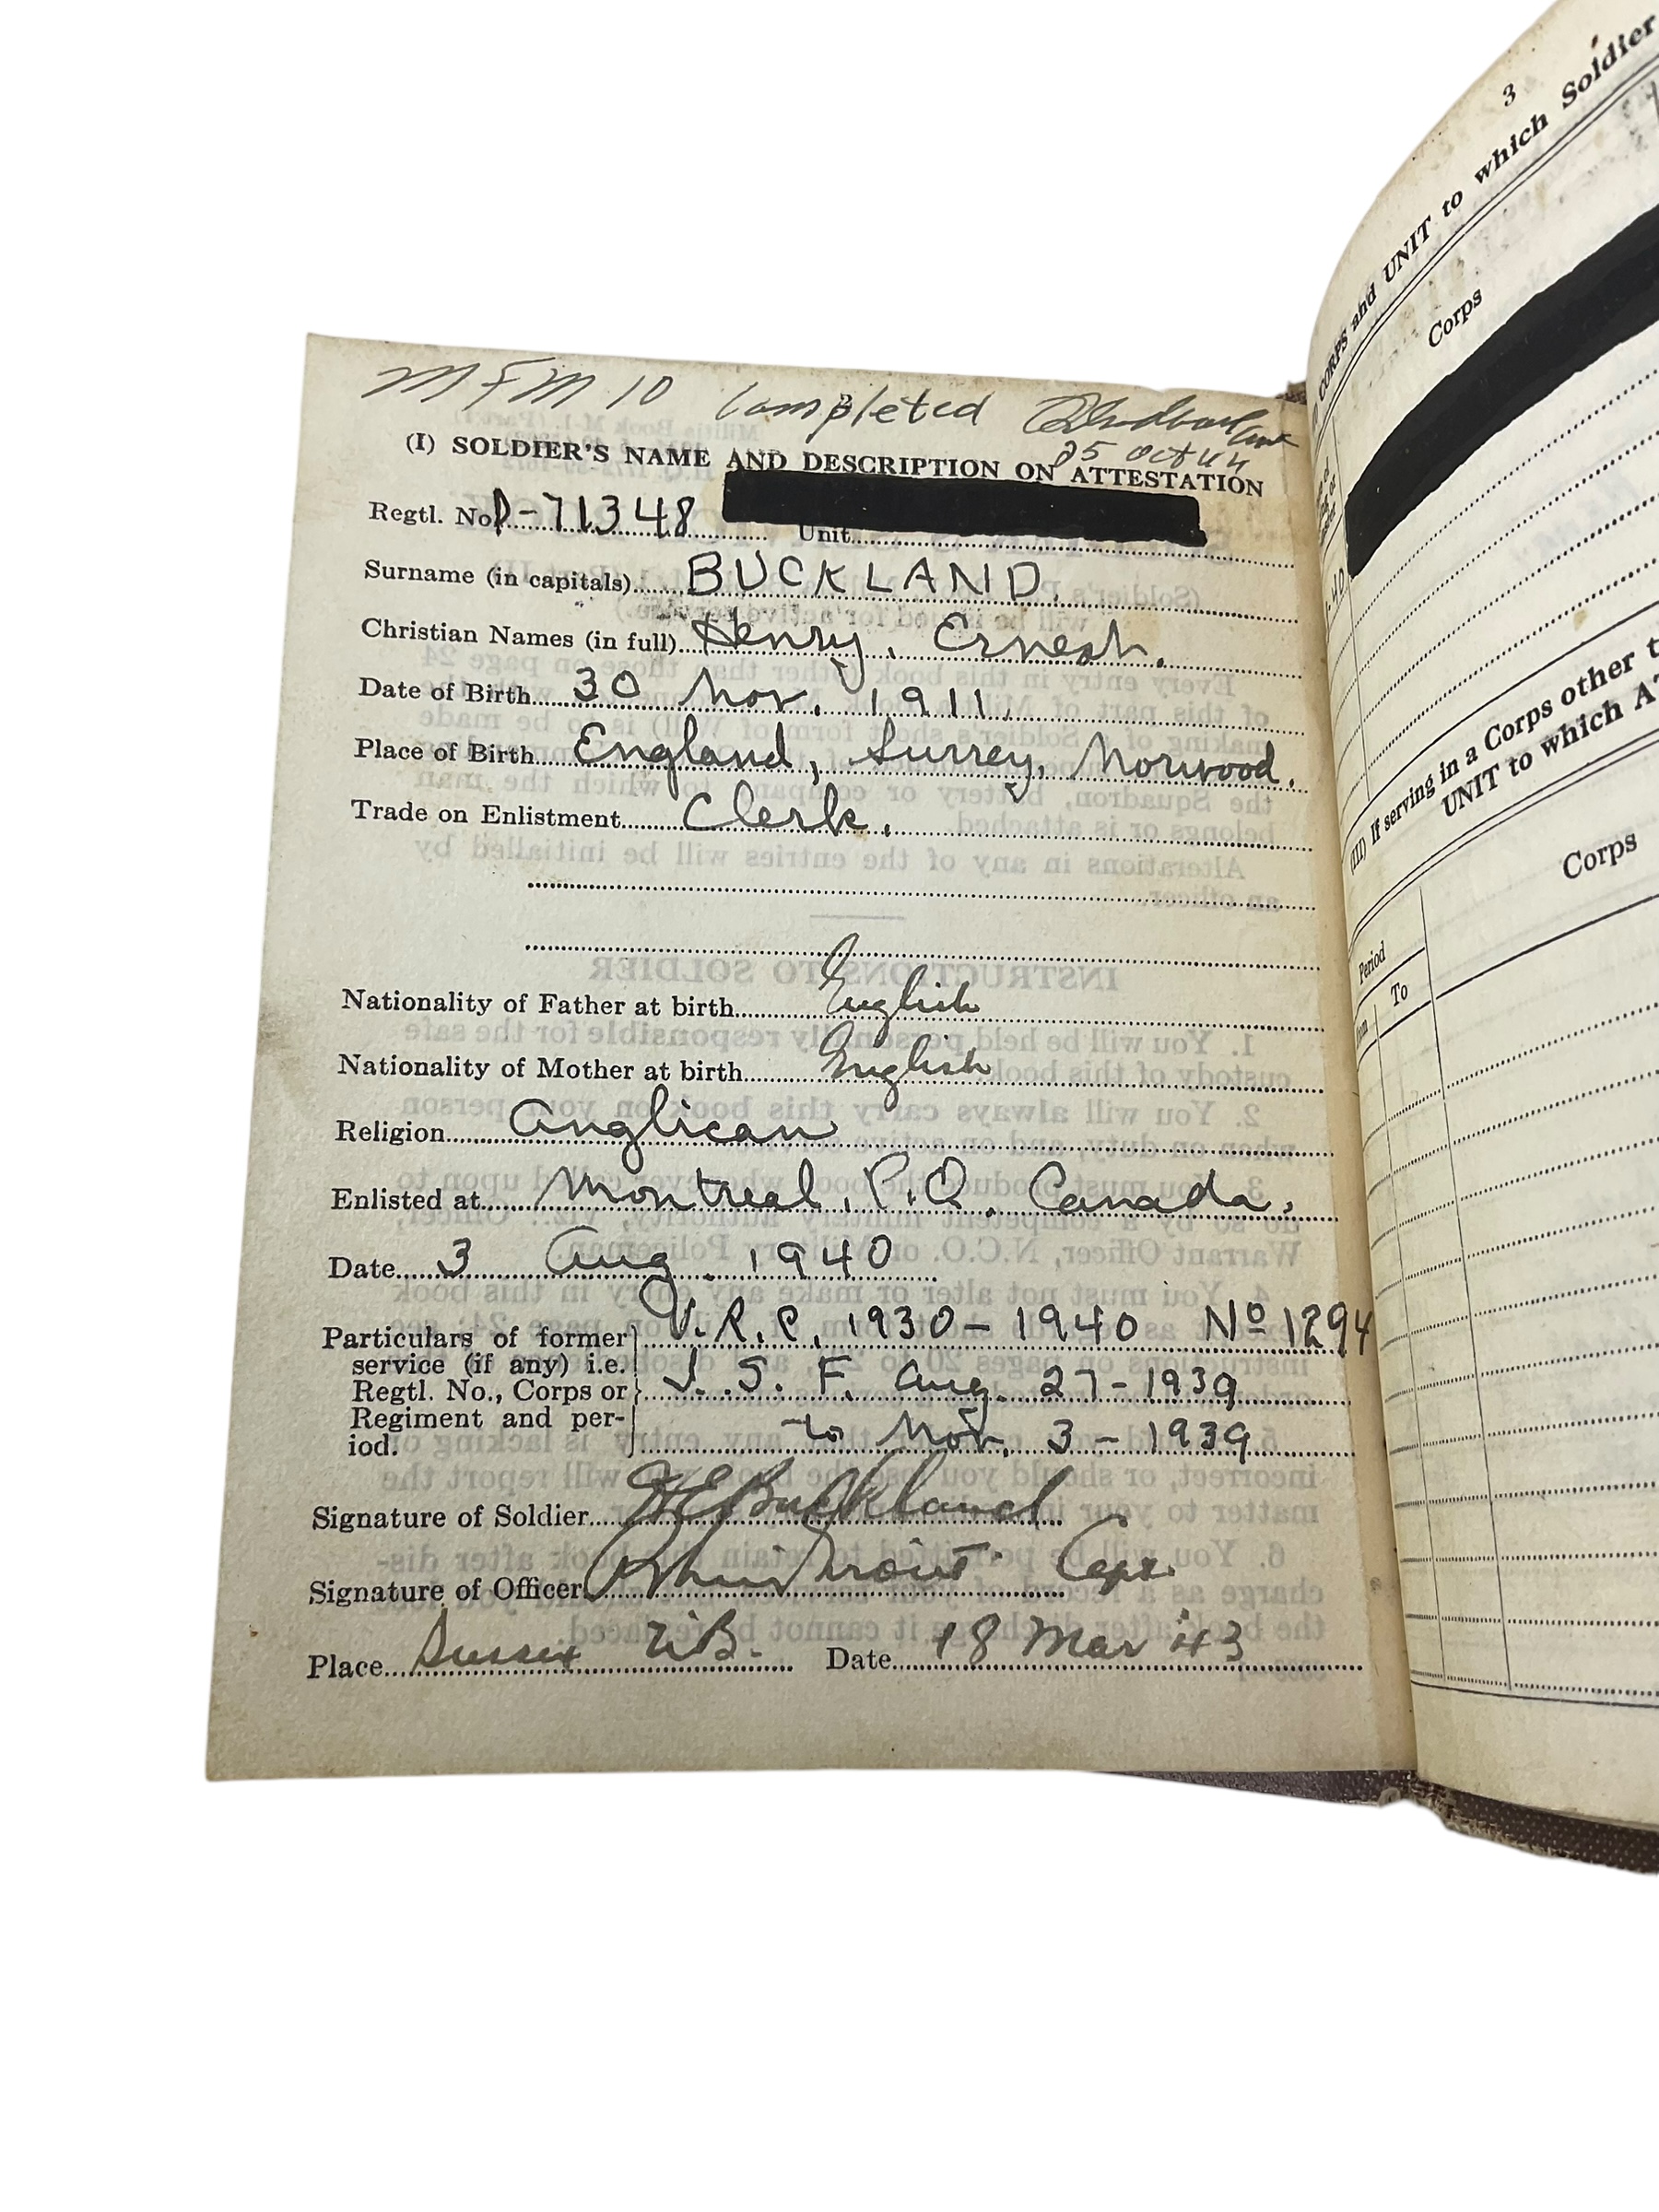 MFM 10 Completed
25 Oct 44
(I) SOLDIER'S NAME AND DESCRIPTION ON ATTESTATION
Regtl. No. D-71348 Unit
Surname (in capitals) BUCKLAND.
Christian Names (in full) Henry, Ernest.
Date of Birth 30 Nov. 1911.
Place of Birth England, Surrey, Norwood.
Trade on Enlistment Clerk.
Nationality of Father at birth English
Nationality of Mother at birth English
Religion Anglican
Enlisted at Montreal, P.Q. Canada,
Date 3 Aug. 1940
Particulars of former V.R.C. 1930-1940 No 1294
service (if any) i.e.
Regtl. No., Corps or I.S.F. Aug. 27-1939
Regiment and per-
iod. to Nov. 3-1939
Signature of Soldier HEBuckland
Signature of Officer Capt
Place Sussex N.B. Date 18 Mar 43
3
CORPS and UNIT to which Soldier
Corps
(III) If serving in a Corps other t
UNIT to which A
Period
Corps
To